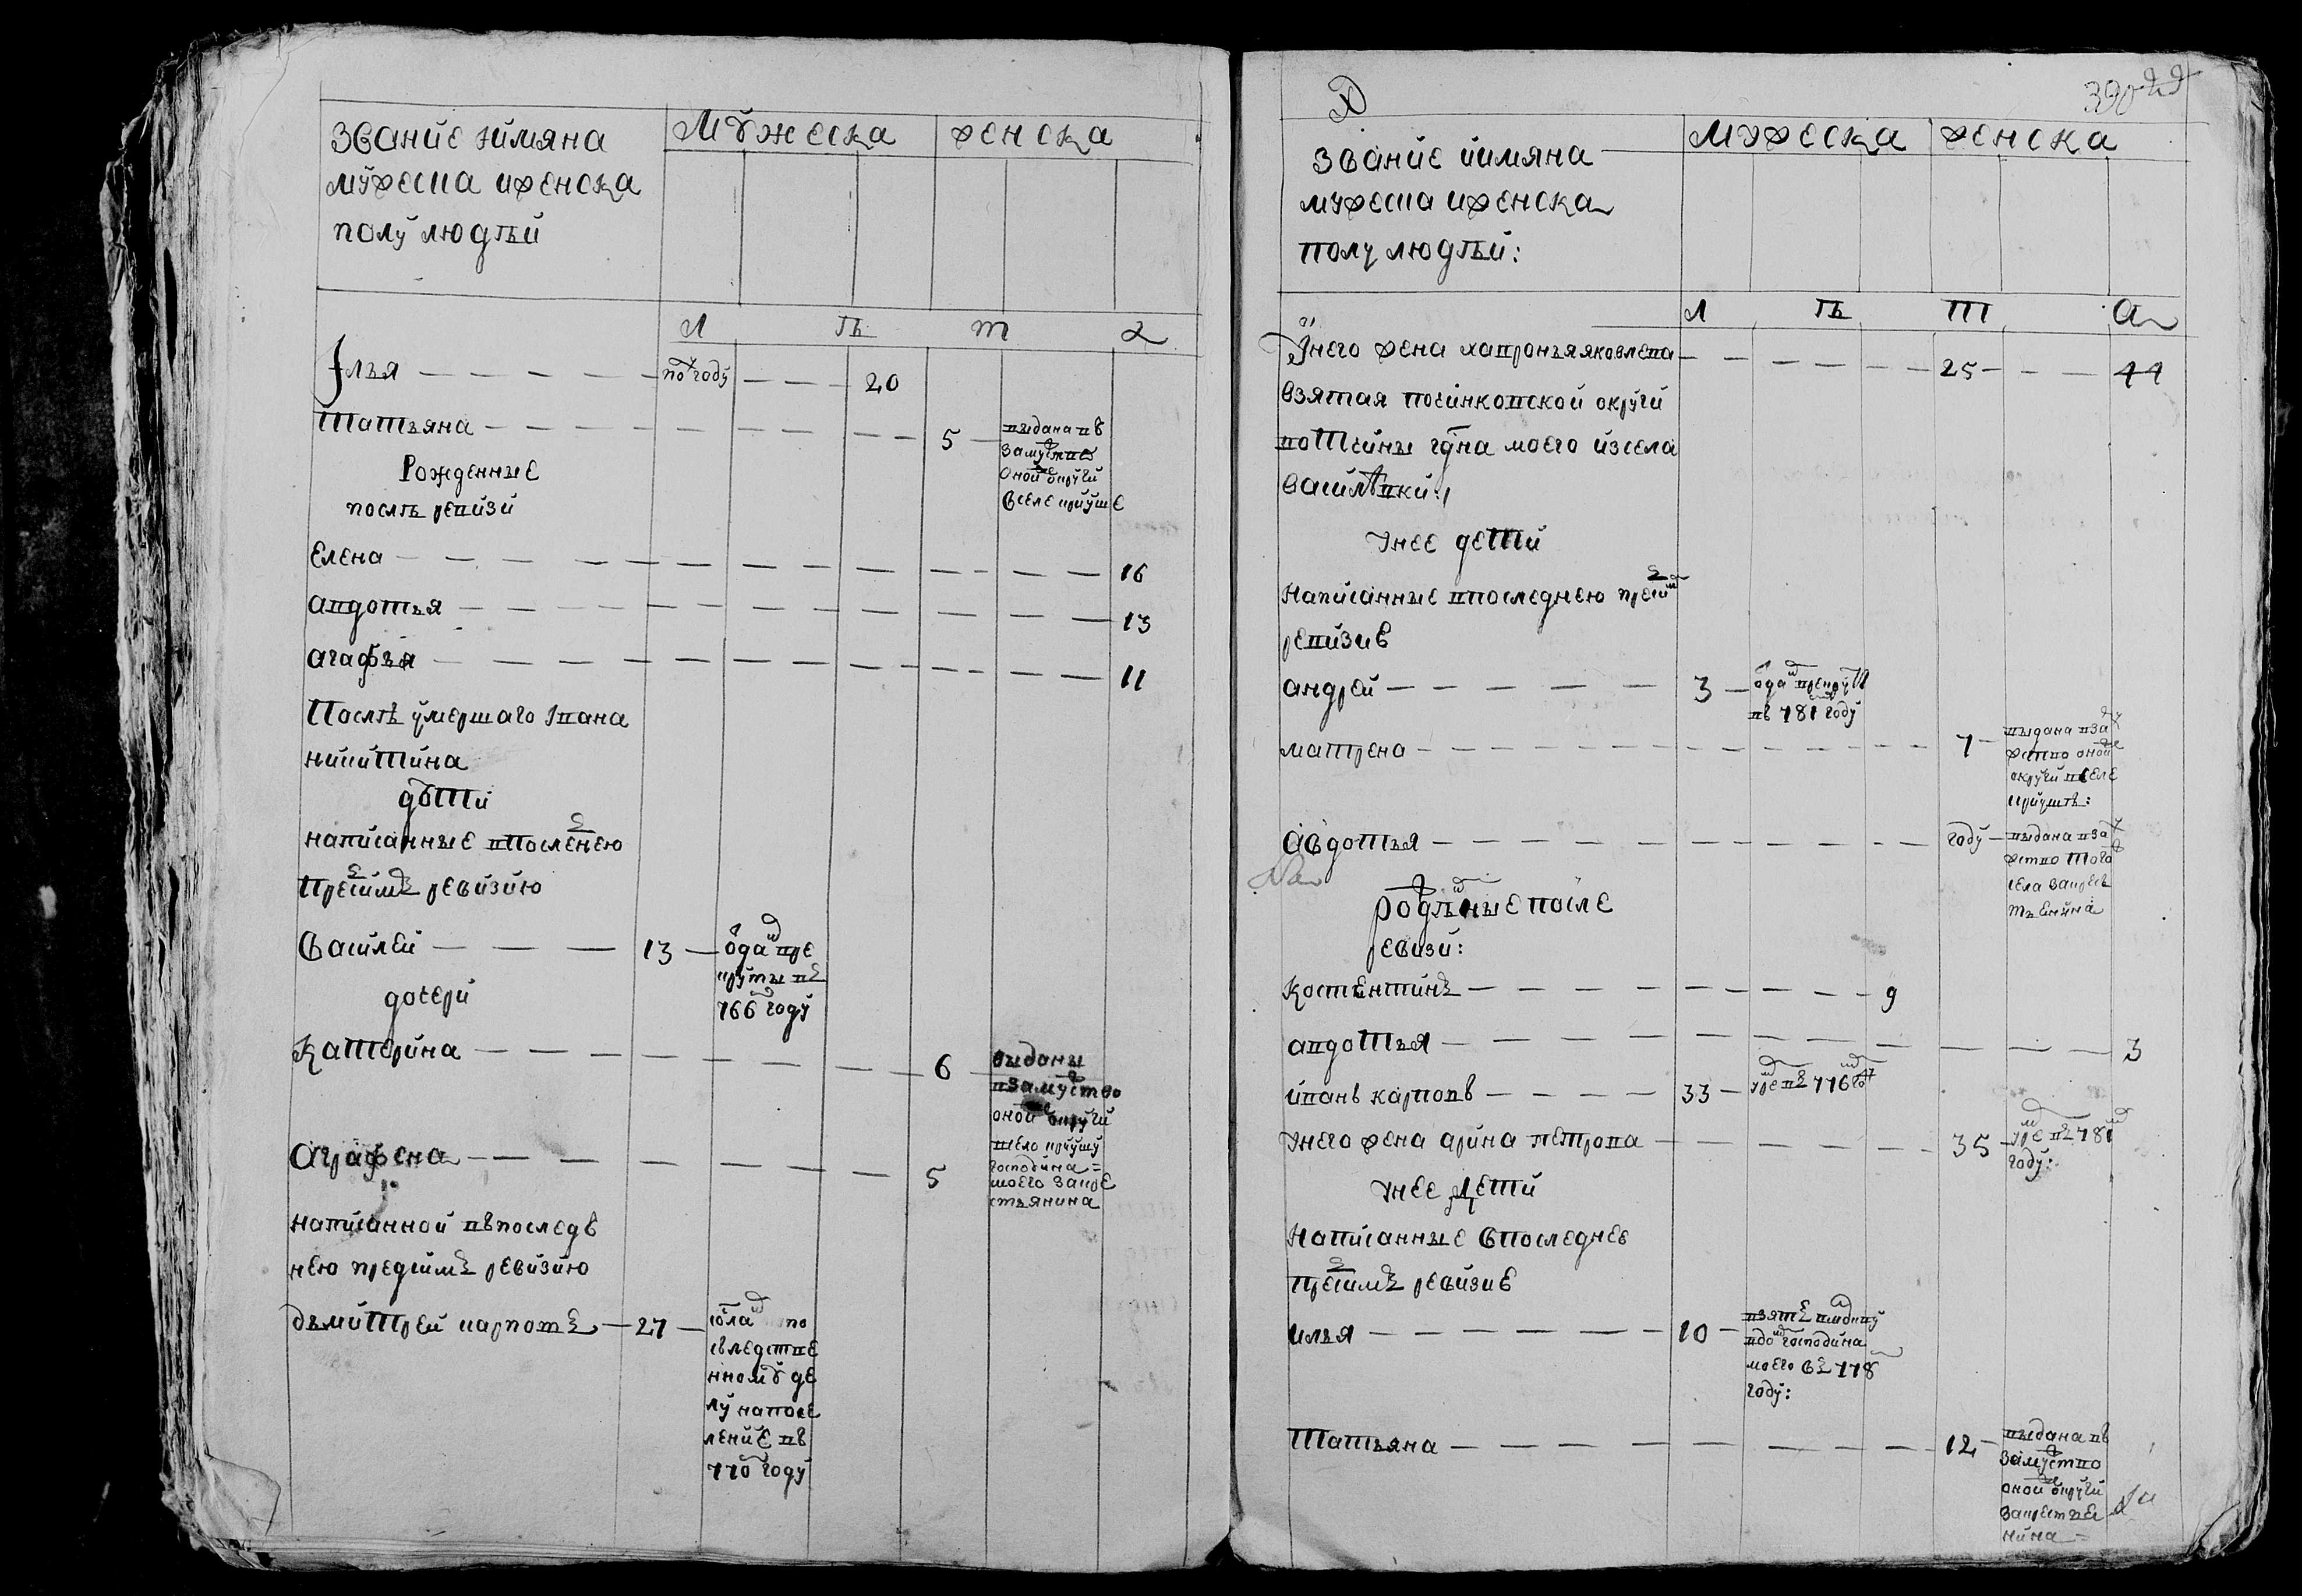 званiе иимяна
мужеска иженска
полу людѣй
Мужеска женска
л ѣ т а
Iлья — по году — 20
Татьяна — 5 — выдана въ
замужтво
оной округи
вселе криуше
Рожденные
послѣ ревизи
Елена — 16
авдотья — 13
агафья — 11
Послѣ умершаго Iвана
никитина
дѣти
написанные впоследнею
Пресимъ ревизию
Василей — 13 — одан в ре
круты въ
766 году
дочери
Катерина — 6 — выданы
взамуство
оной округи
вседо криушу
господина
моего закре
стьянина
Аграфена — 5
написанной въпоследъ
нею предсимъ ревизию
дьмитрей карповъ — 27 — сослан по
следстве
нному де
лу напосе
ление въ
770 году
званiе иимяна
мужеска иженска
полу людѣй:
мужеска женска
л ѣ т а
Унего жена хавронья яковлева — 25 — 44
взятая починковской округи
вотчины гдна моего изсела
василѣвки:
унее дети
написанные впоследнею пресим
ревизиѣ
андрей — 3 — одан врекруты
въ 781 году
матрена — 7 — выдана вза
жство оной
округи вселе
криушѣ:
Авдотья — году — выдана вза
жство того
села закрес
тьенина
родѣные после
ревизи:
костентинъ — 9
авдотья — 3
иванъ карповъ — 33 — умре въ 776 году
унего жена арина петрова — 35 — умре въ 781
году:
унее дети
написанные впоследнеѣ
пресимъ ревизиѣ
илья — 10 — взятъ
во господина
моего въ 778
году:
татьяна — 12 — выдана въ
замуство
оной округи
закрестье
нина